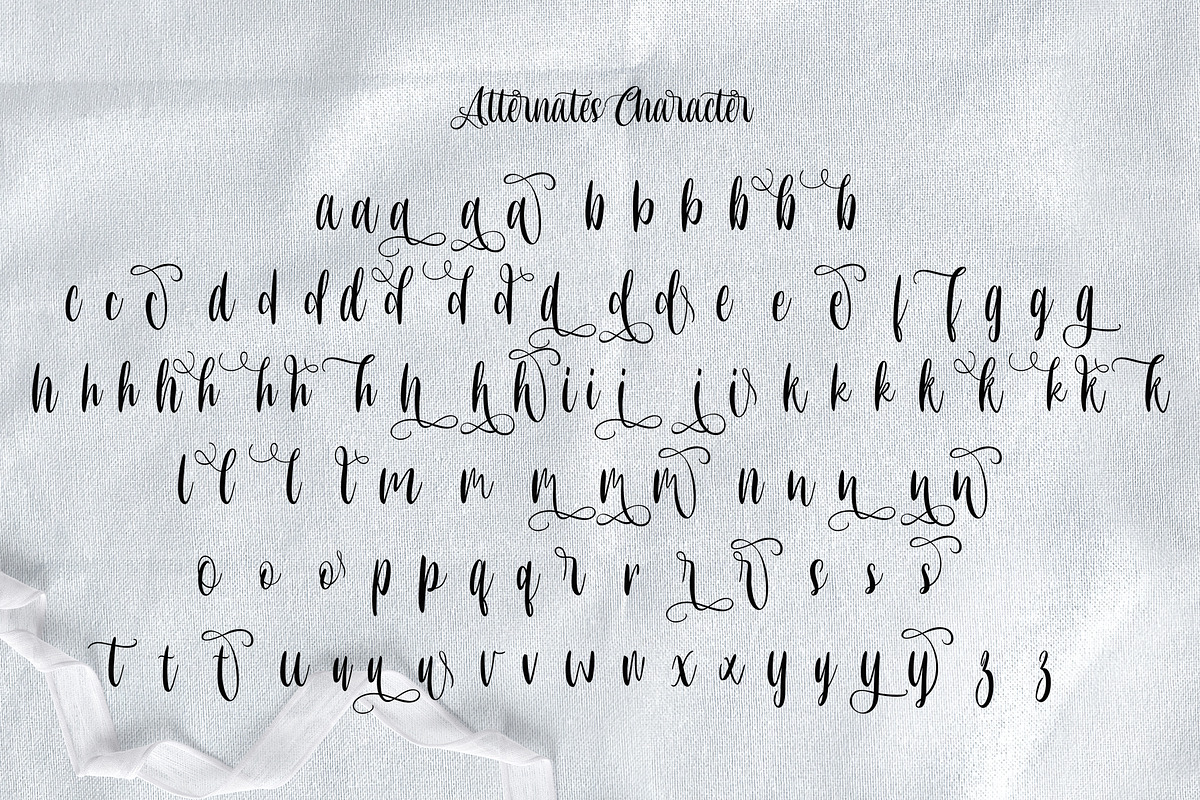 Alternates Character
a a a a a b b b b b b
c c c d d d d d d d d d d e e e f f g g g
h h h h h h h h h h h i i i i i k k k k k k k k
l l l l m m m m m n n n n n
o o o p p q q r r r r s s s
t t t u u u u v v w w x x y y y y z z